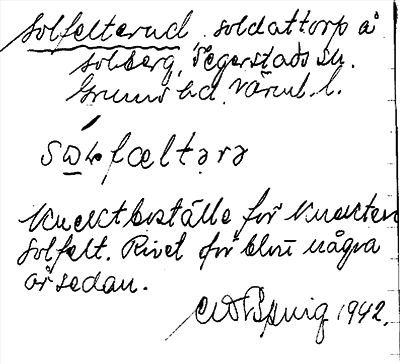 Solfelterud, soldattorp å
Solberg, Segerstads sn.
Grums hd. Värml. l.
sωLfæltərə
Knektboställe för knekten
Solfelt. Rivet för blott några
år sedan.
1942.